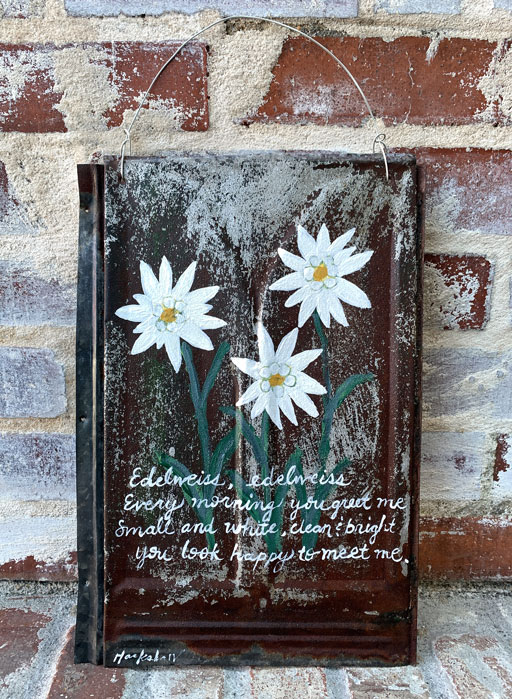 Edelweiss, edelweiss
Every morning you greet me
Small and white, clean & bright
you look happy to meet me.